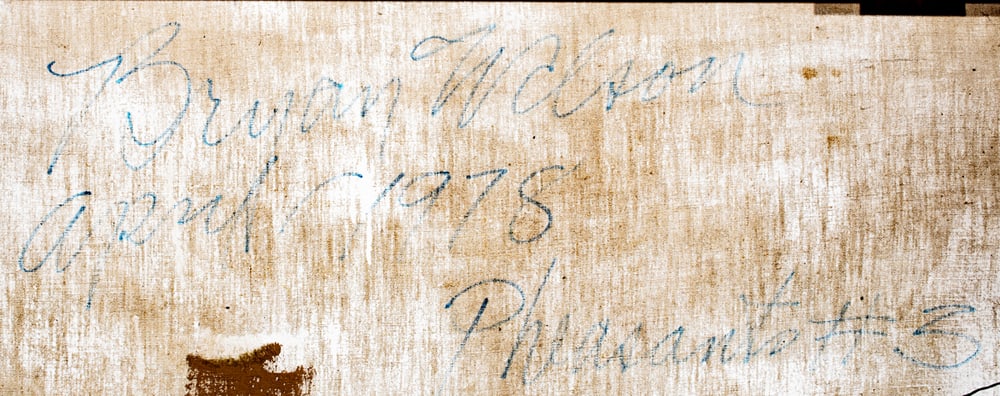 Bryan Wilson
April, 1978
Pheasants #3